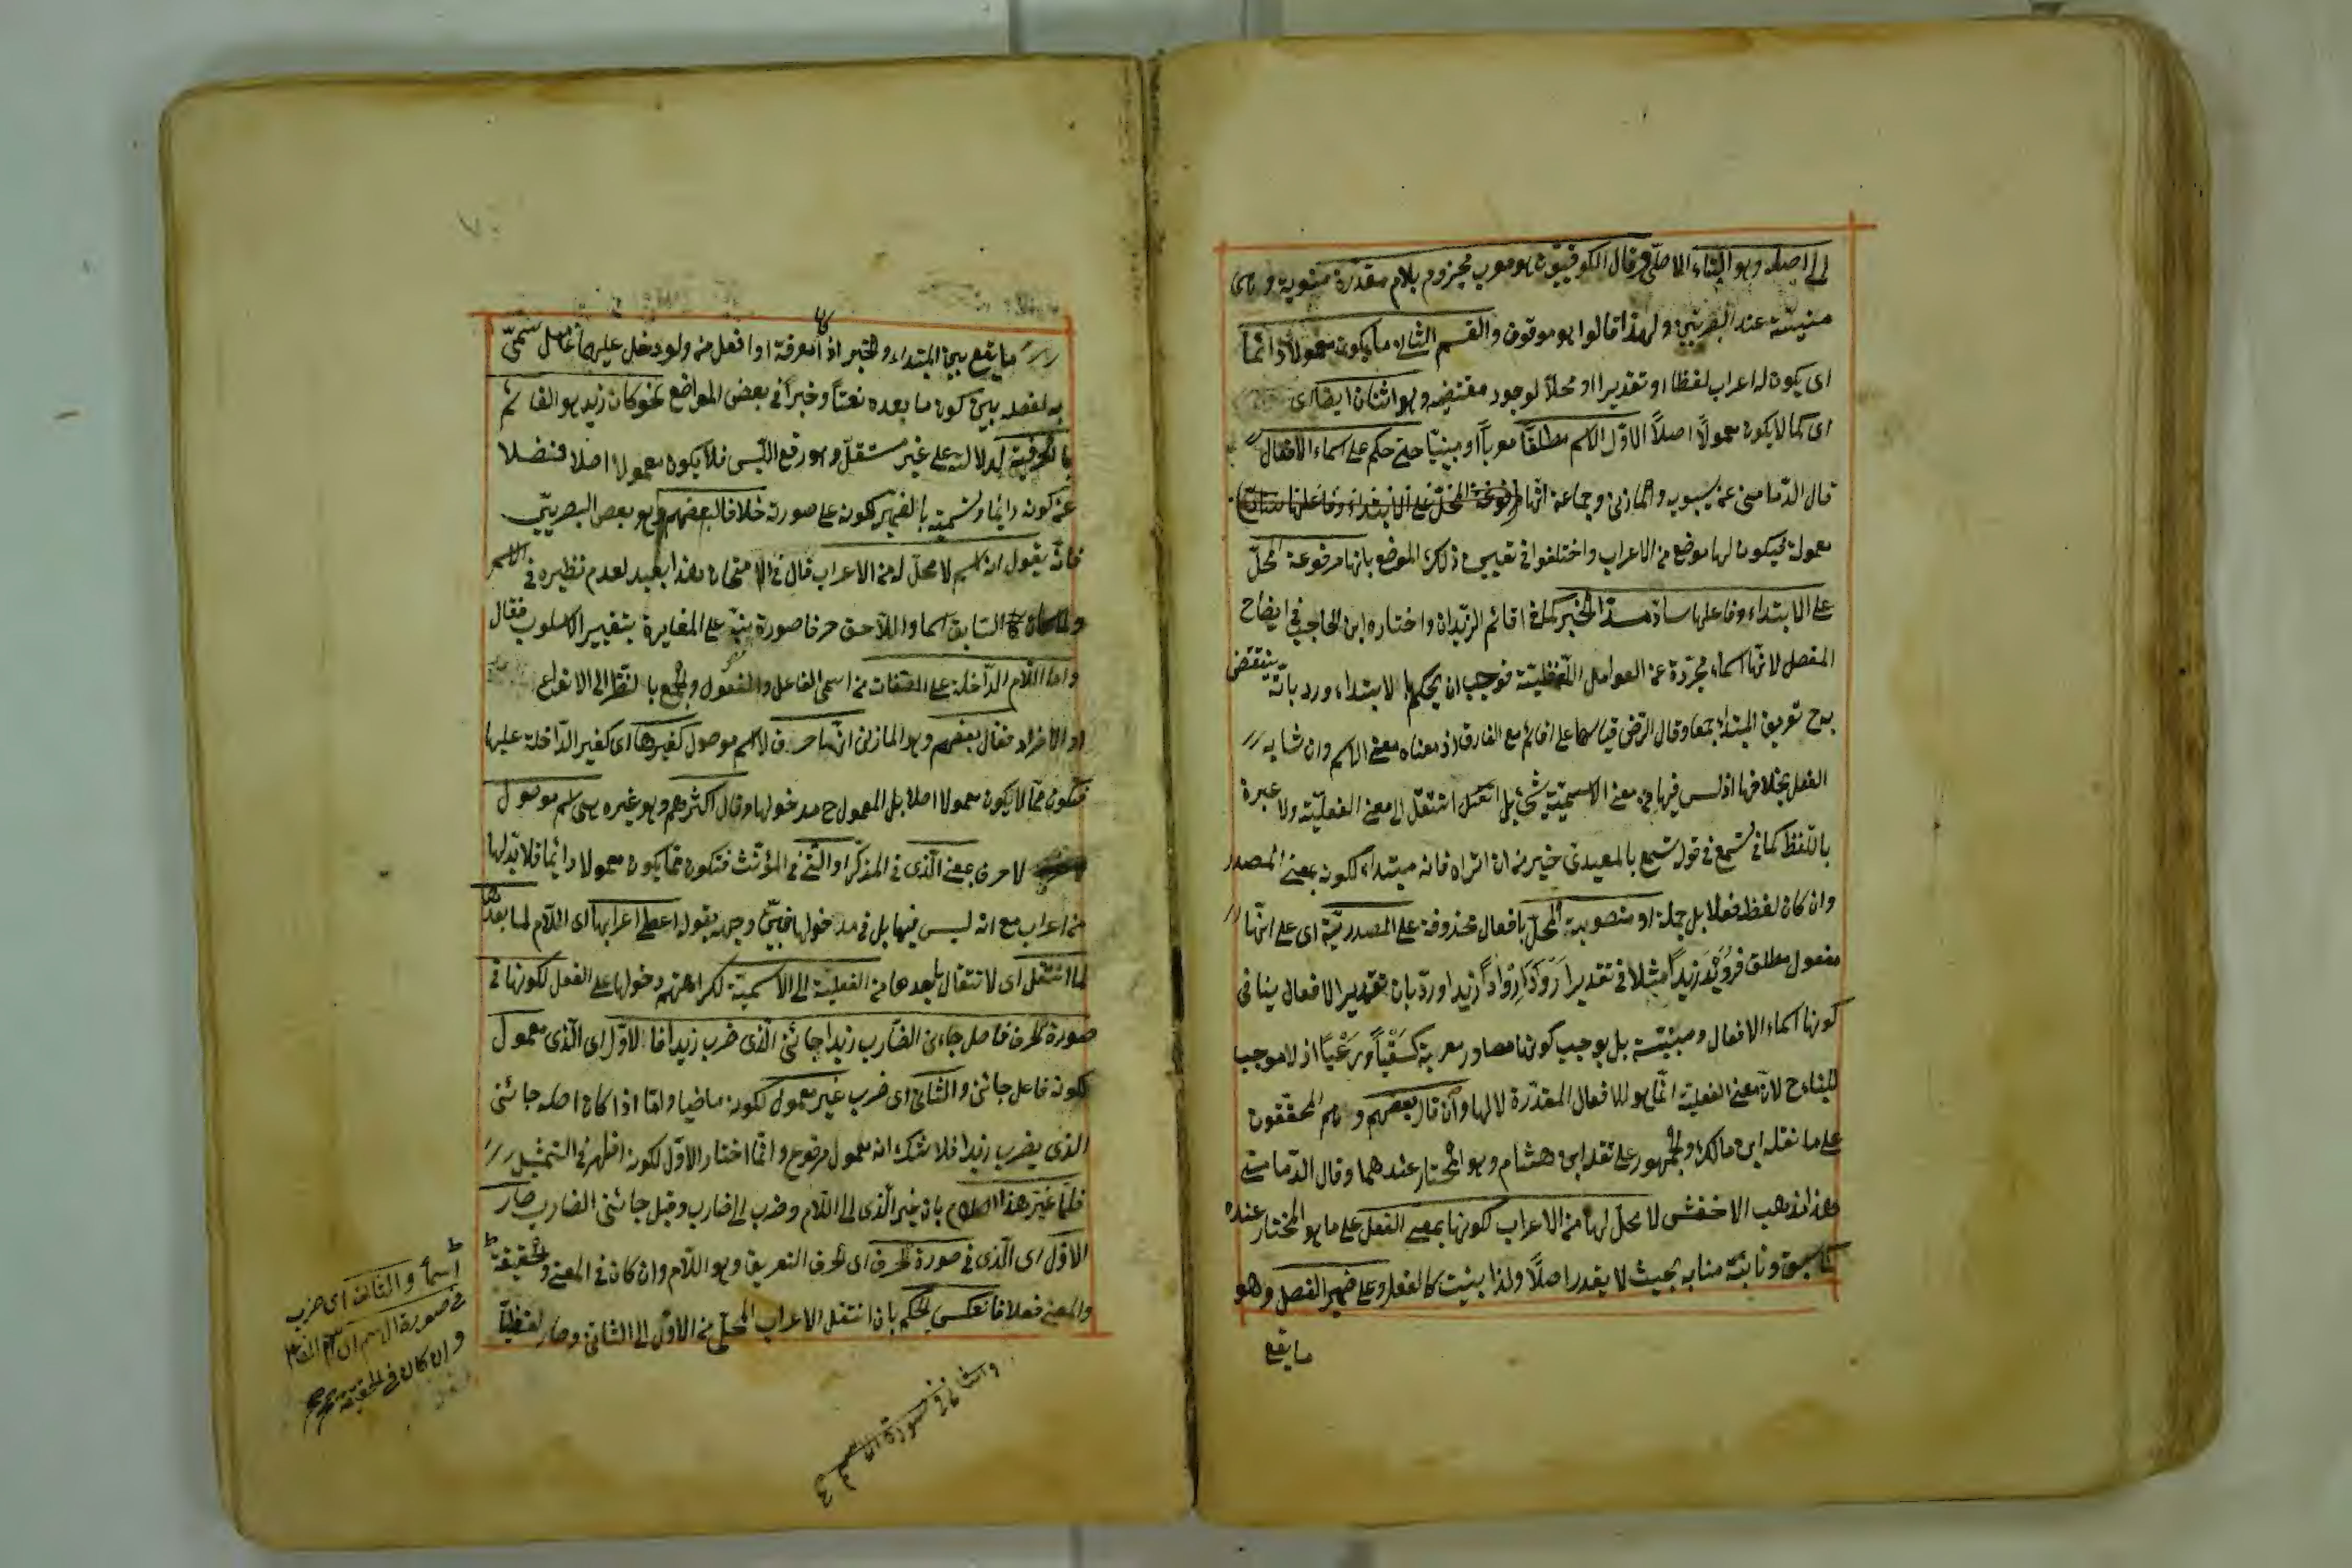 الى اصله وهو البناء الاصلى وقال الكوفيون هو معرب مجزوم بلام مقدرة منوية وهى
منسية عند البصريين ولهذا قالوا هو موقوف والقسم الثانى ما يكون معمولا دائما
اى يكون له اعراب لفظا او تقديرا او محلا لوجود مقتضيه وهو اثنان ايضا اى
اى كما لا يكون معمولا اصلا الاول الاسم مطلقا معربا او مبنيا حتى حكم على اسماء الافعال
قال الدمامينى عن سيبويه والمازنى وجماعة انها مرفوعة المحل على الابتداء وفاعلها ساد
معمولة فيكون لها موضع من الاعراب واختلفوا فى تعيين ذلك الموضع بانها مرفوعة المحل
على الابتداء وفاعلها ساد مسد الخبر كما فى اقائم الزيدان واختاره ابن الحاجب فى ايضاح
المفصل لانها اسماء مجردة عن العوامل اللفظية فوجب ان يحكم بالابتداء ورد بانه ينتقض
به ح تعريف المبتدأ جمعا وقال الرضى قياسها على اقائم مع الفارق اذ معناه معنى الاسم وان شابه
الفعل بخلافها اذ ليس فيها من معنى الاسمية شئ بل انتقل الى معنى الفعلية ولا عبرة
باللفظ كما فى تسمع فى قول تسمع بالمعيدى خير من ان تراه فانه مبتداء لكونه بمعنى المصدر
وان كان لفظه فعلا بل جملة او منصوبة المحل بافعال محذوفة على المصدرية اى على انها
مفعول مطلق فرويد زيدا مثلا فى تقدير ارود اروادا زيدا ورد بان تقدير الافعال ينافى
كونها اسماء الافعال ومبنية بل يوجب كونها مصادر معربة كسقيا ورعيا اذ لا موجب
للبناء ح لان معنى الفعلية انما هو للافعال المقدرة لا لها وان قال بعضهم وهم المحققون
على ما نقله ابن مالك والجمهور على نقل ابن هشام وهو المختار عندهما وقال الدمامينى
وهذا مذهب الاخفش لا محل لها من الاعراب لكونها بمعنى الفعل على ما هو المختار عنده
كما سبق ونائبة منابه بحيث لا يقدر اصلا ولذا بنيت كالفعل وعلى ضمير الفصل وهو
ما يقع
ما يقع بين المبتداء والخبر اذا معرفة او افعل من ولو دخل عليهما عامل سمى
به لفصله بين كون ما بعده نعتا وخبرا فى بعض المواضع نحو كان زيد هو القائم
بالحرفية لدلالته على غير مستقل وهو رفع اللبس فلا يكون معمولا اصلا فضلا
عن كونه دائما وتسميته بالضمير لكونه على صورته خلافا لبعضهم وهو بعض البصريين
فانه يقول انه اسم لا محل له من الاعراب قال فى الامتحان وهذا بعيد لعدم نظيره فى الاسم
ولما كان السابق اسما واللاحق حرفا صورة نبه على المغايرة بتغيير الاسلوب فقال
واما اللام الداخلة على الصفات من اسمى الفاعل والمفعول والجمع بالنظر الى الانواع
او الافراد فقال بعضهم وهو المازنى انها حرف لا اسم موصول كغيرها اى كغير الداخلة عليها
فتكون مما لا يكون معمولا اصلا بل المعمول ح مدخولها وقال اكثرهم وهو غيره هى اسم موصول
لا حرف بمعنى الذى فى المذكر او التى فى المؤنث فتكون مما يكون معمولا دائما فلا بد لها
من اعراب مع انه ليس فيها بل فى مدخولها فبين وجهه بقوله اعطى اعرابها اى اللام لما بعدها
لما انتقل اى لانتقال ما بعدها من الفعلية الى الاسمية لكراهتهم دخولها على الفعل لكونها فى
صورة الحرف فاصل جاءنى الضارب زيدا جائنى الذى ضرب زيدا فالاول اى الذى معمول
لكونه فاعل جائنى والثانى اى ضرب غير معمول لكونه ماضيا واما اذا كان اصله جائنى
الذى يضرب زيدا فلا شك انه معمول مرفوع وانما اختار الاول لكونه اظهر فى التمثيل
فلما غير هذا الكلام بان غير الذى الى اللام وضرب الى ضارب وقيل جائنى الضارب صار
الاول اى الذى فى صورة الحرف اى حرف التعريف وهو اللام وان كان فى المعنى والحقيقة
والمعنى فعلا فانعكس الحكم بان انتقل الاعراب المحلى من الاول الى الثانى وصار لفظيا
اسما والثانى اى ضرب
فى صورة الاسم
وان كان فى الحقيقة
والثانى فى صورة الاسم